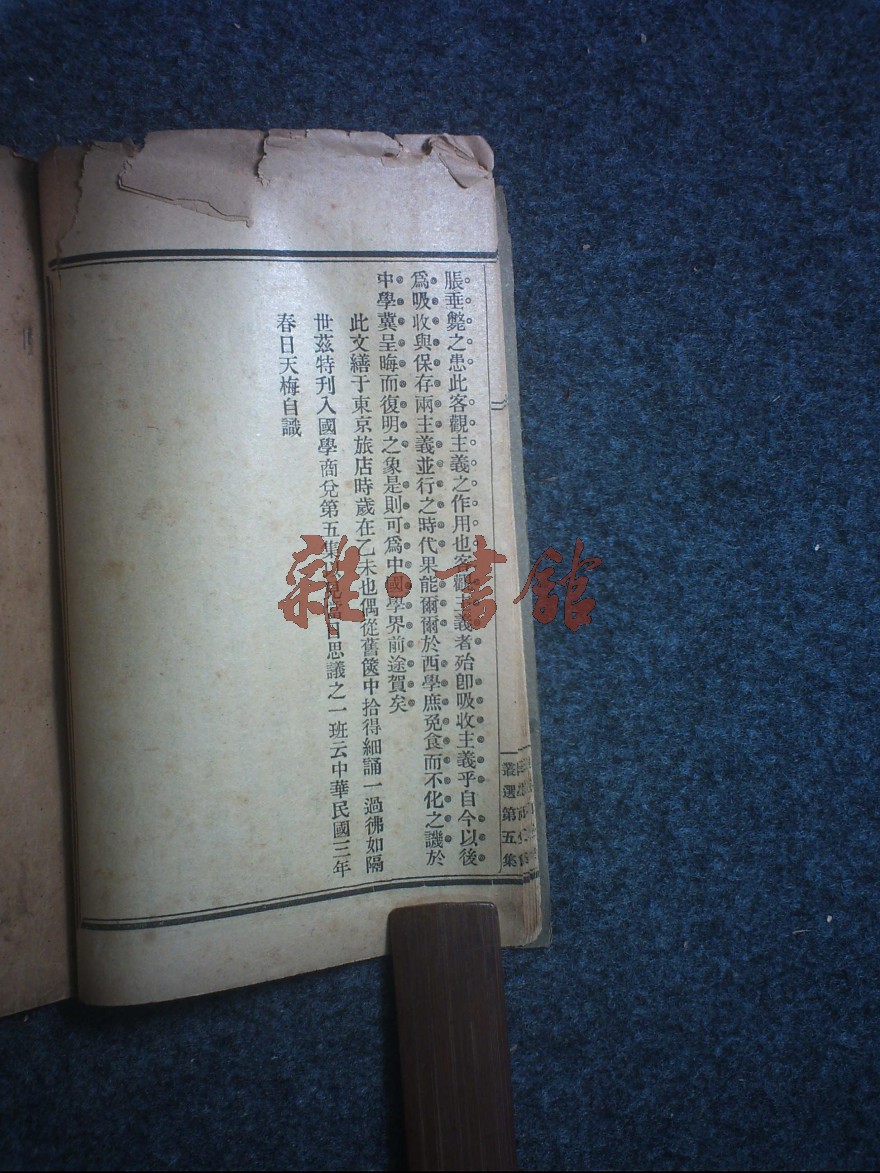 脹垂斃之患此客觀主義之作用也客觀主義者殆卽吸收主義乎自今以後
爲吸收與保存兩主義並行之時代果能爾爾於西學庶免食而不化之譏於
中學冀呈晦而復明之象是則可爲中國學界前途賀矣
此文繕于東京旅店時歲在乙未也偶從舊篋中拾得細誦一過彿如隔
世茲特刋入國學商兌第五集以見當日思議之一班云中華民國三年
春日天梅自識
叢選第五集
雜·書館